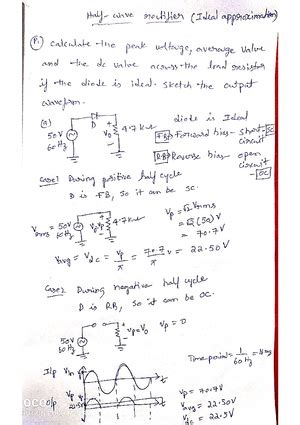 Half-wave rectifier (Ideal approximation)
P1) Calculate the peak voltage, average value
and the dc value across the load resistor
if the diode is ideal. Sketch the output
waveform.
(a)
D
50V
60Hz
Vo
4.7kΩ
diode is Ideal
FB → Forward bias - short circuit - SC
RB → Reverse bias - open circuit - OC
Case1 During positive half cycle
D is FB, So it can be SC.
Vrms = 50V
60Hz
Vp
4.7k
Vp = √2 Vrms
= √2 (50) V
= 70.7V
Vavg = Vdc = Vp/π = 70.7/π V = 22.50V
Case2 During negative half cycle
D is RB, So it can be OC.
50V
60Hz
Vp=Vo
Vp = 0
Time period = 1/60Hz = 16 ms
I/p
Vin
t
O/p
Vp
22.5V
t
Vp = 70.7V
Vavg = 22.50V
Vdc = 22.5V